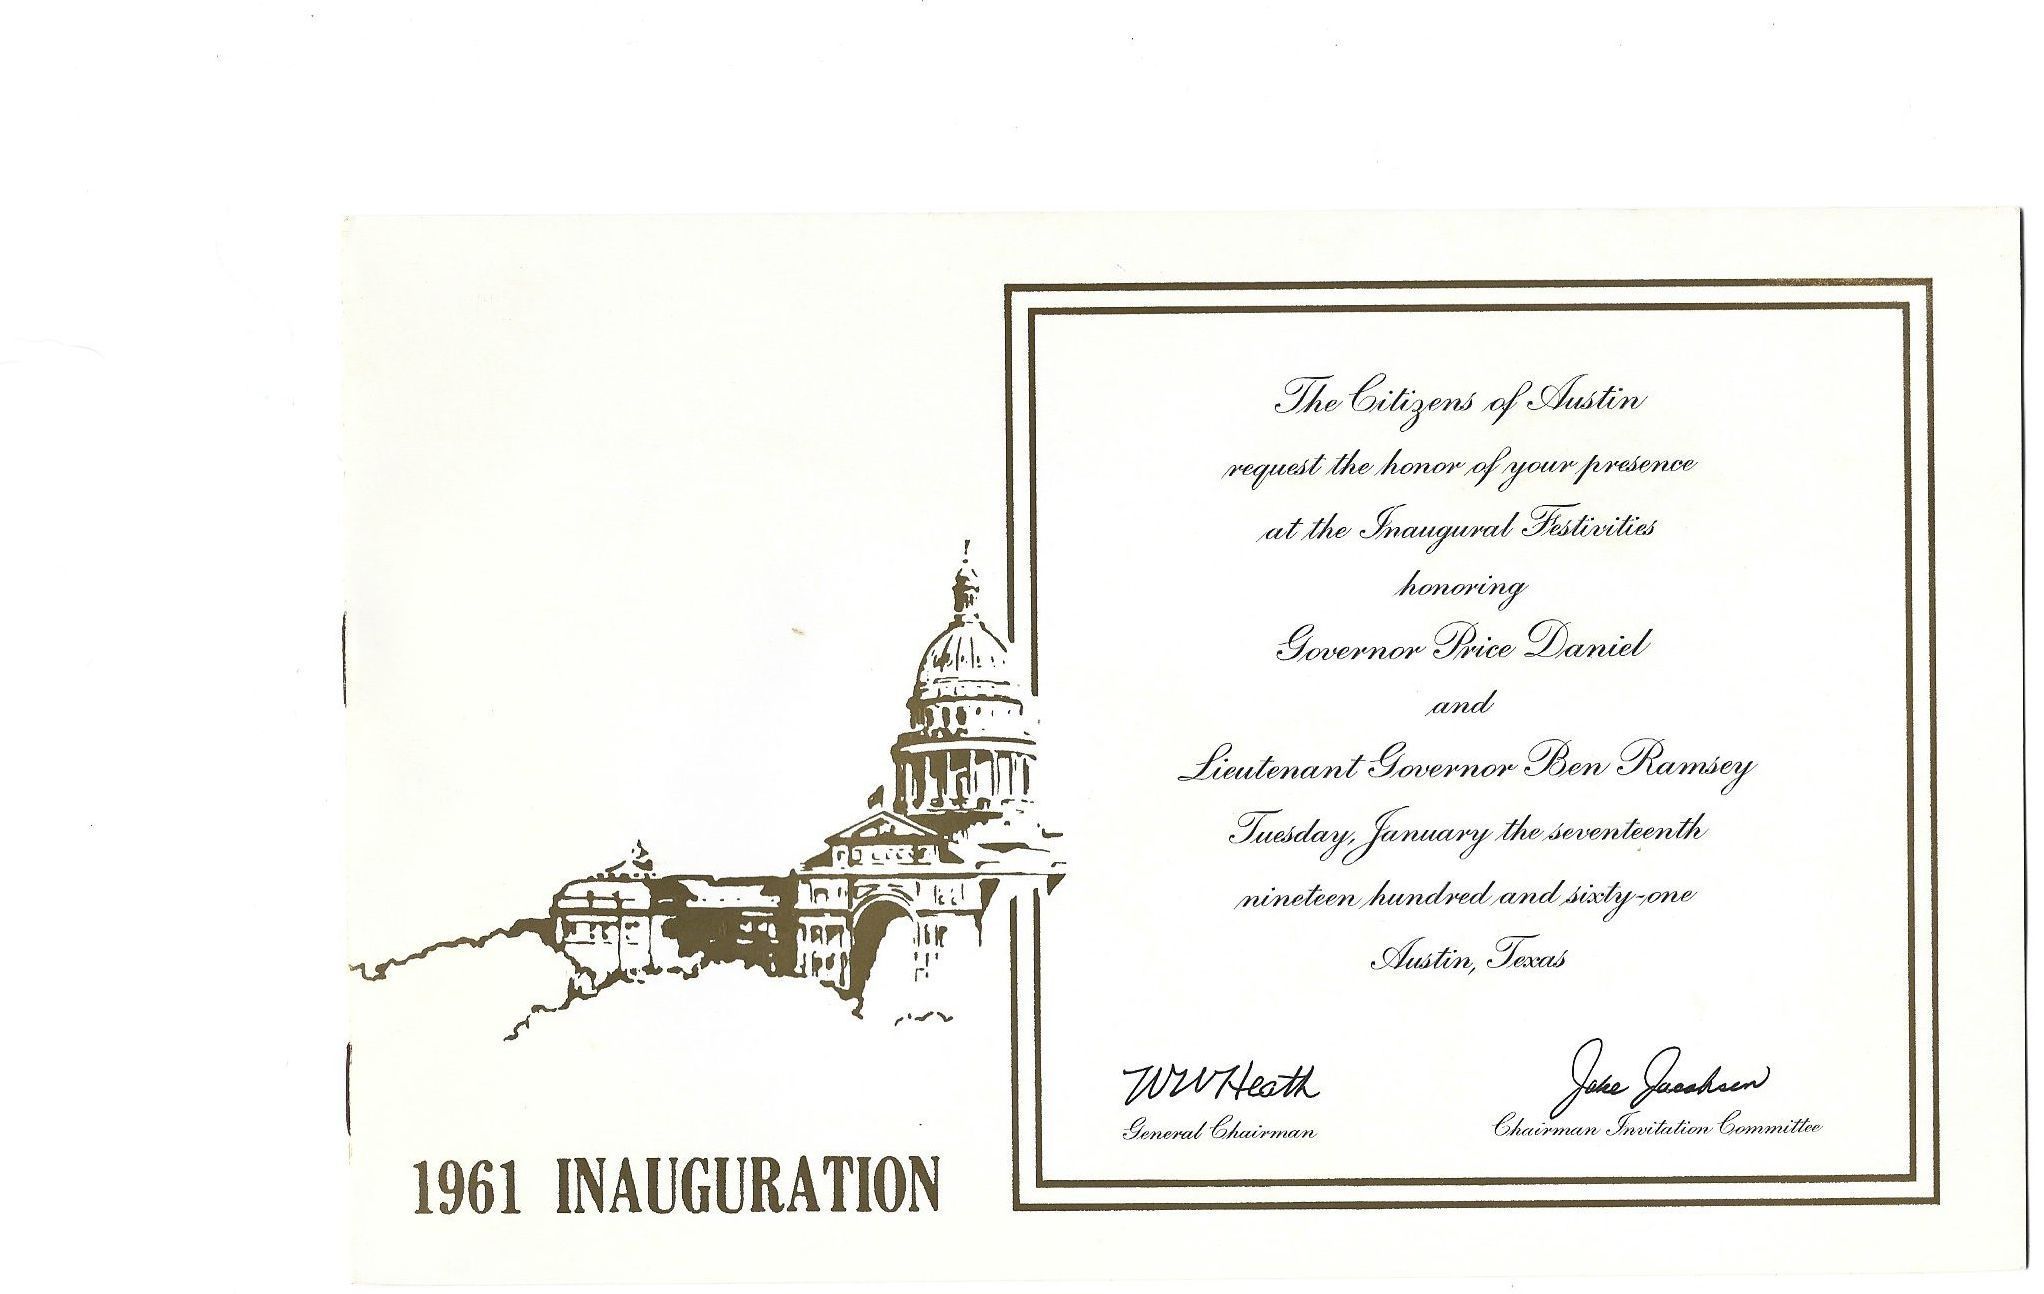 The Citizens of Austin
request the honor of your presence
at the Inaugural Festivities
honoring
Governor Price Daniel
and
Lieutenant Governor Ben Ramsey
Tuesday, January the seventeenth
nineteen hundred and sixty-one
Austin, Texas
WW Heath
General Chairman
Jake Jacobsen
Chairman Invitation Committee
1961 INAUGURATION